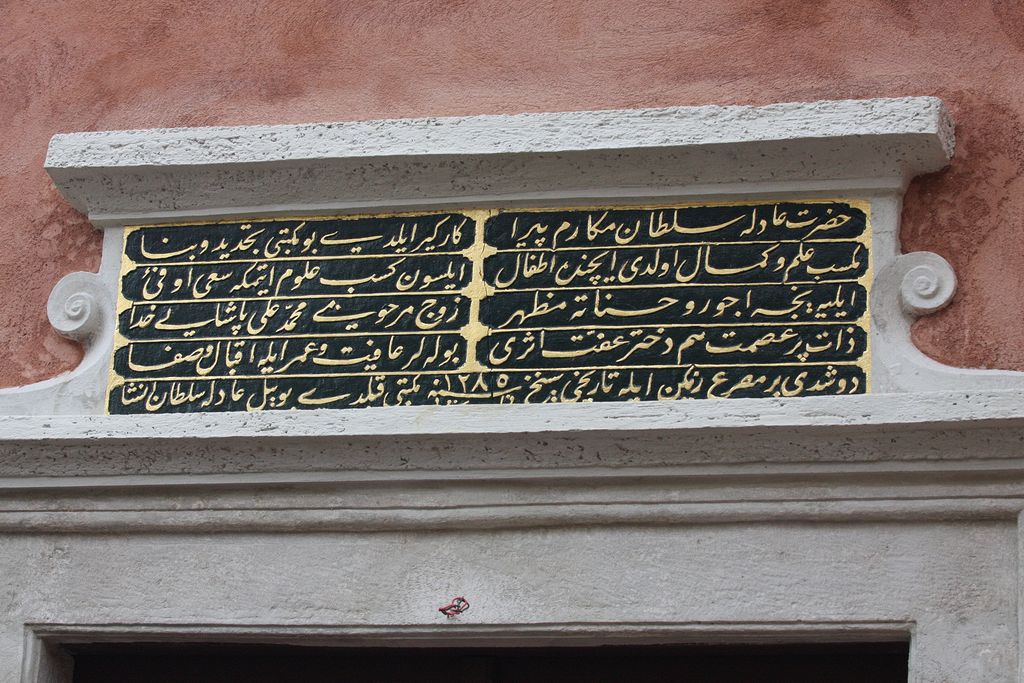 حضرت عادله سلطان مكارم پیرا كاركیر ایلدی بو مكتبی تجدید و بنا
مكسب علم و كمال اولدی ایچنده اطفال ایلسون كسب علوم ایتمكه سعی اوفی
ایلیه نیجه اجور و حسناته مظهر زوج مرحومی محمد علی پاشایی خدا
ذات پر عصمت هم دختر عفت اثری بوله لر عافیت و عمر ایله اقبال و صفا
دوشدی بر مصرع رنكین ایله تاریخی سنه ١٢٨٥ مكتبی قیلدی بو ییل عادله سلطان انشا